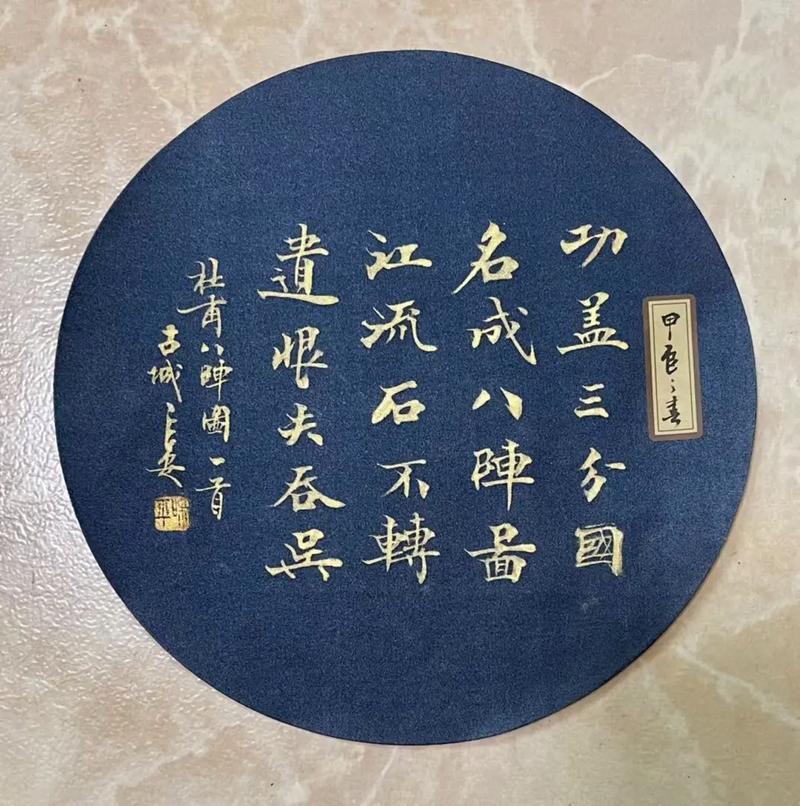 甲辰之春
功盖三分國
名成八陣啚
江流石不轉
遺恨失吞呉
杜甫八陣圖一首
古城长安